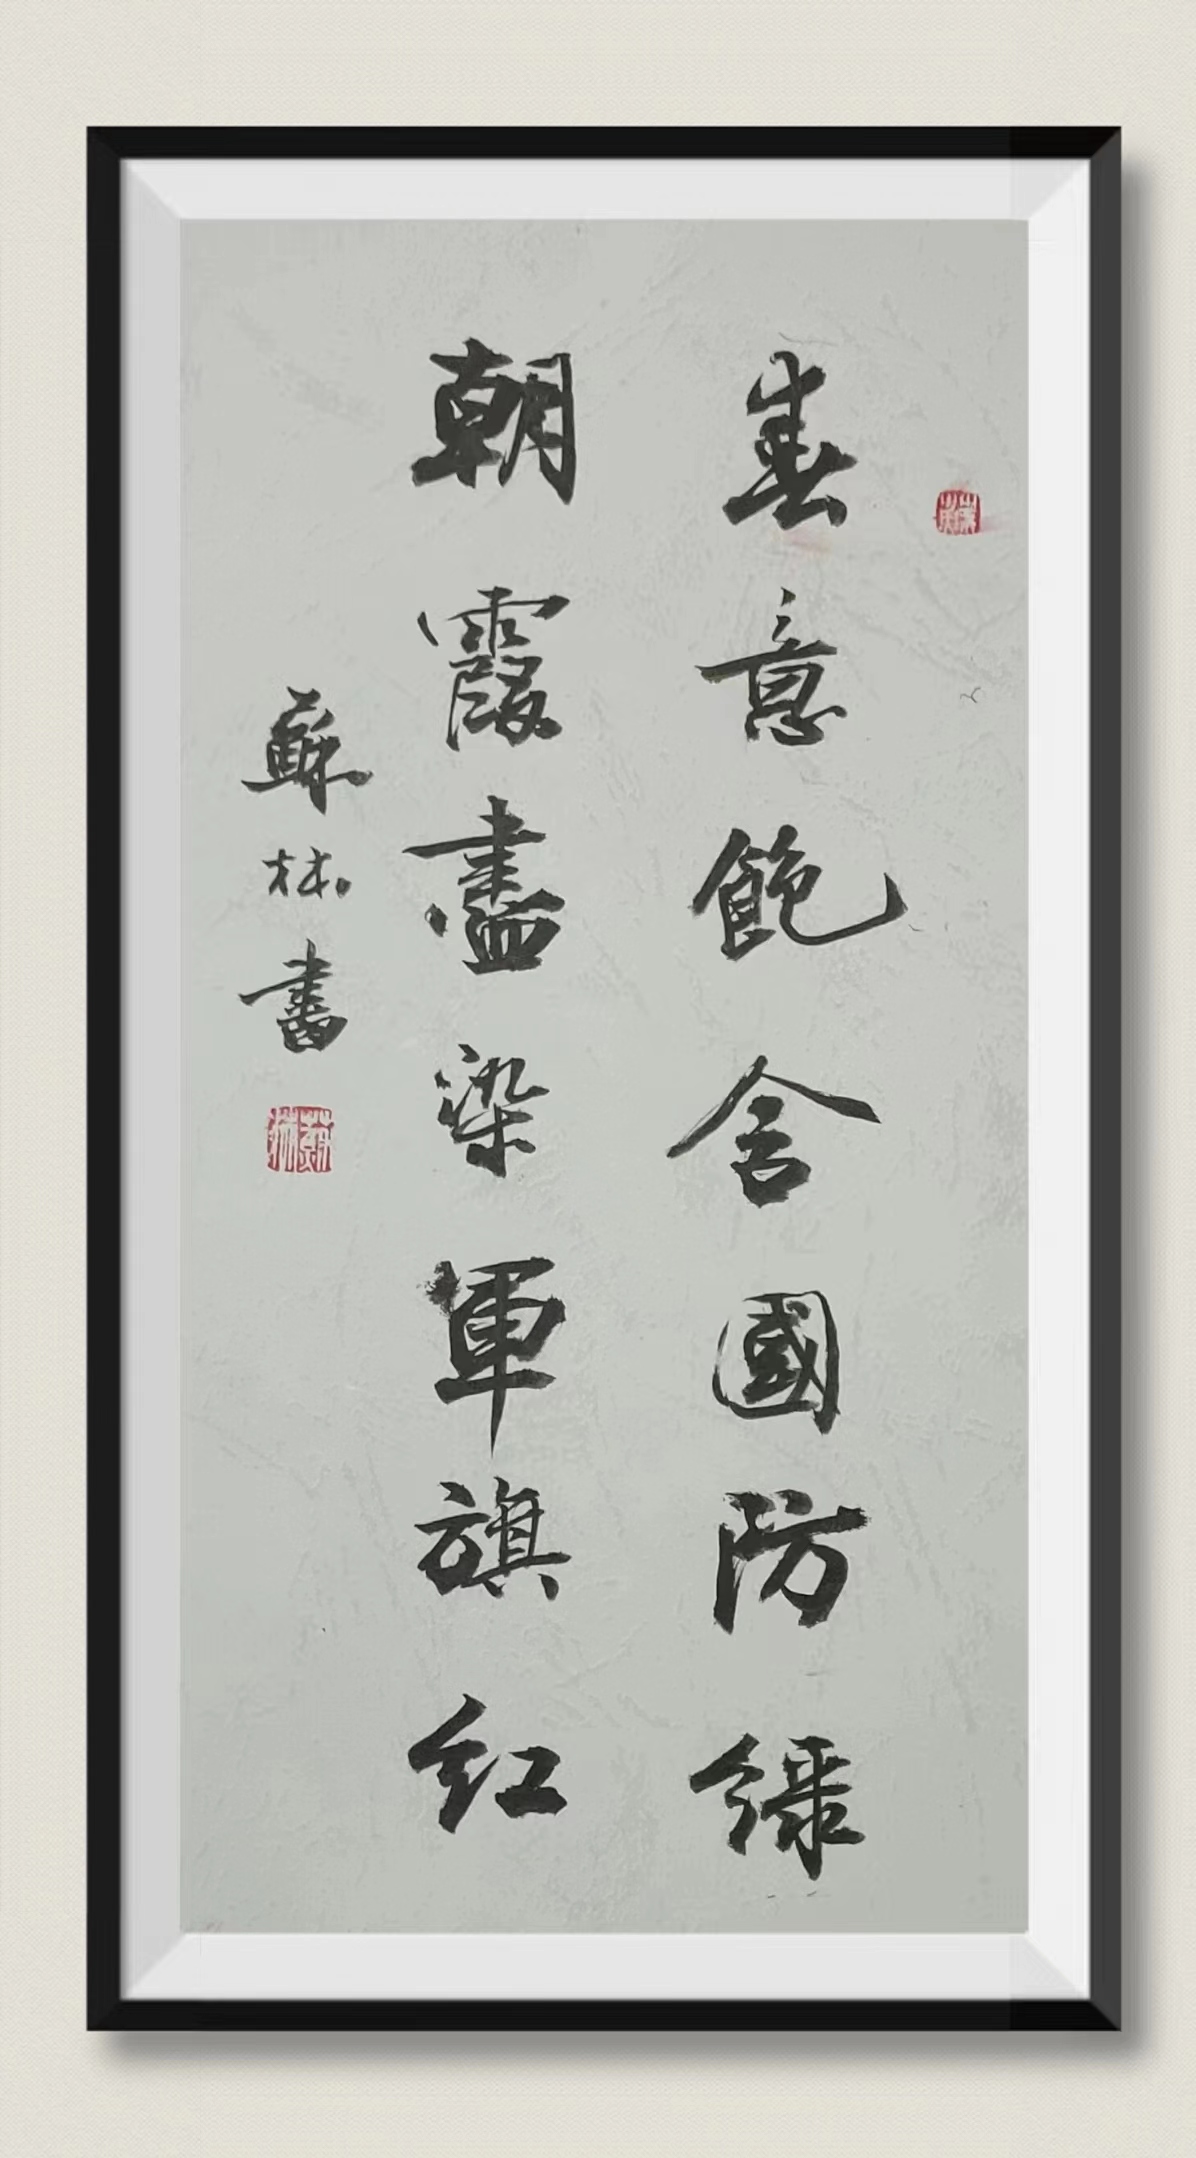 春意飽含國防绿
朝霞盡染軍旗红
蘇林書